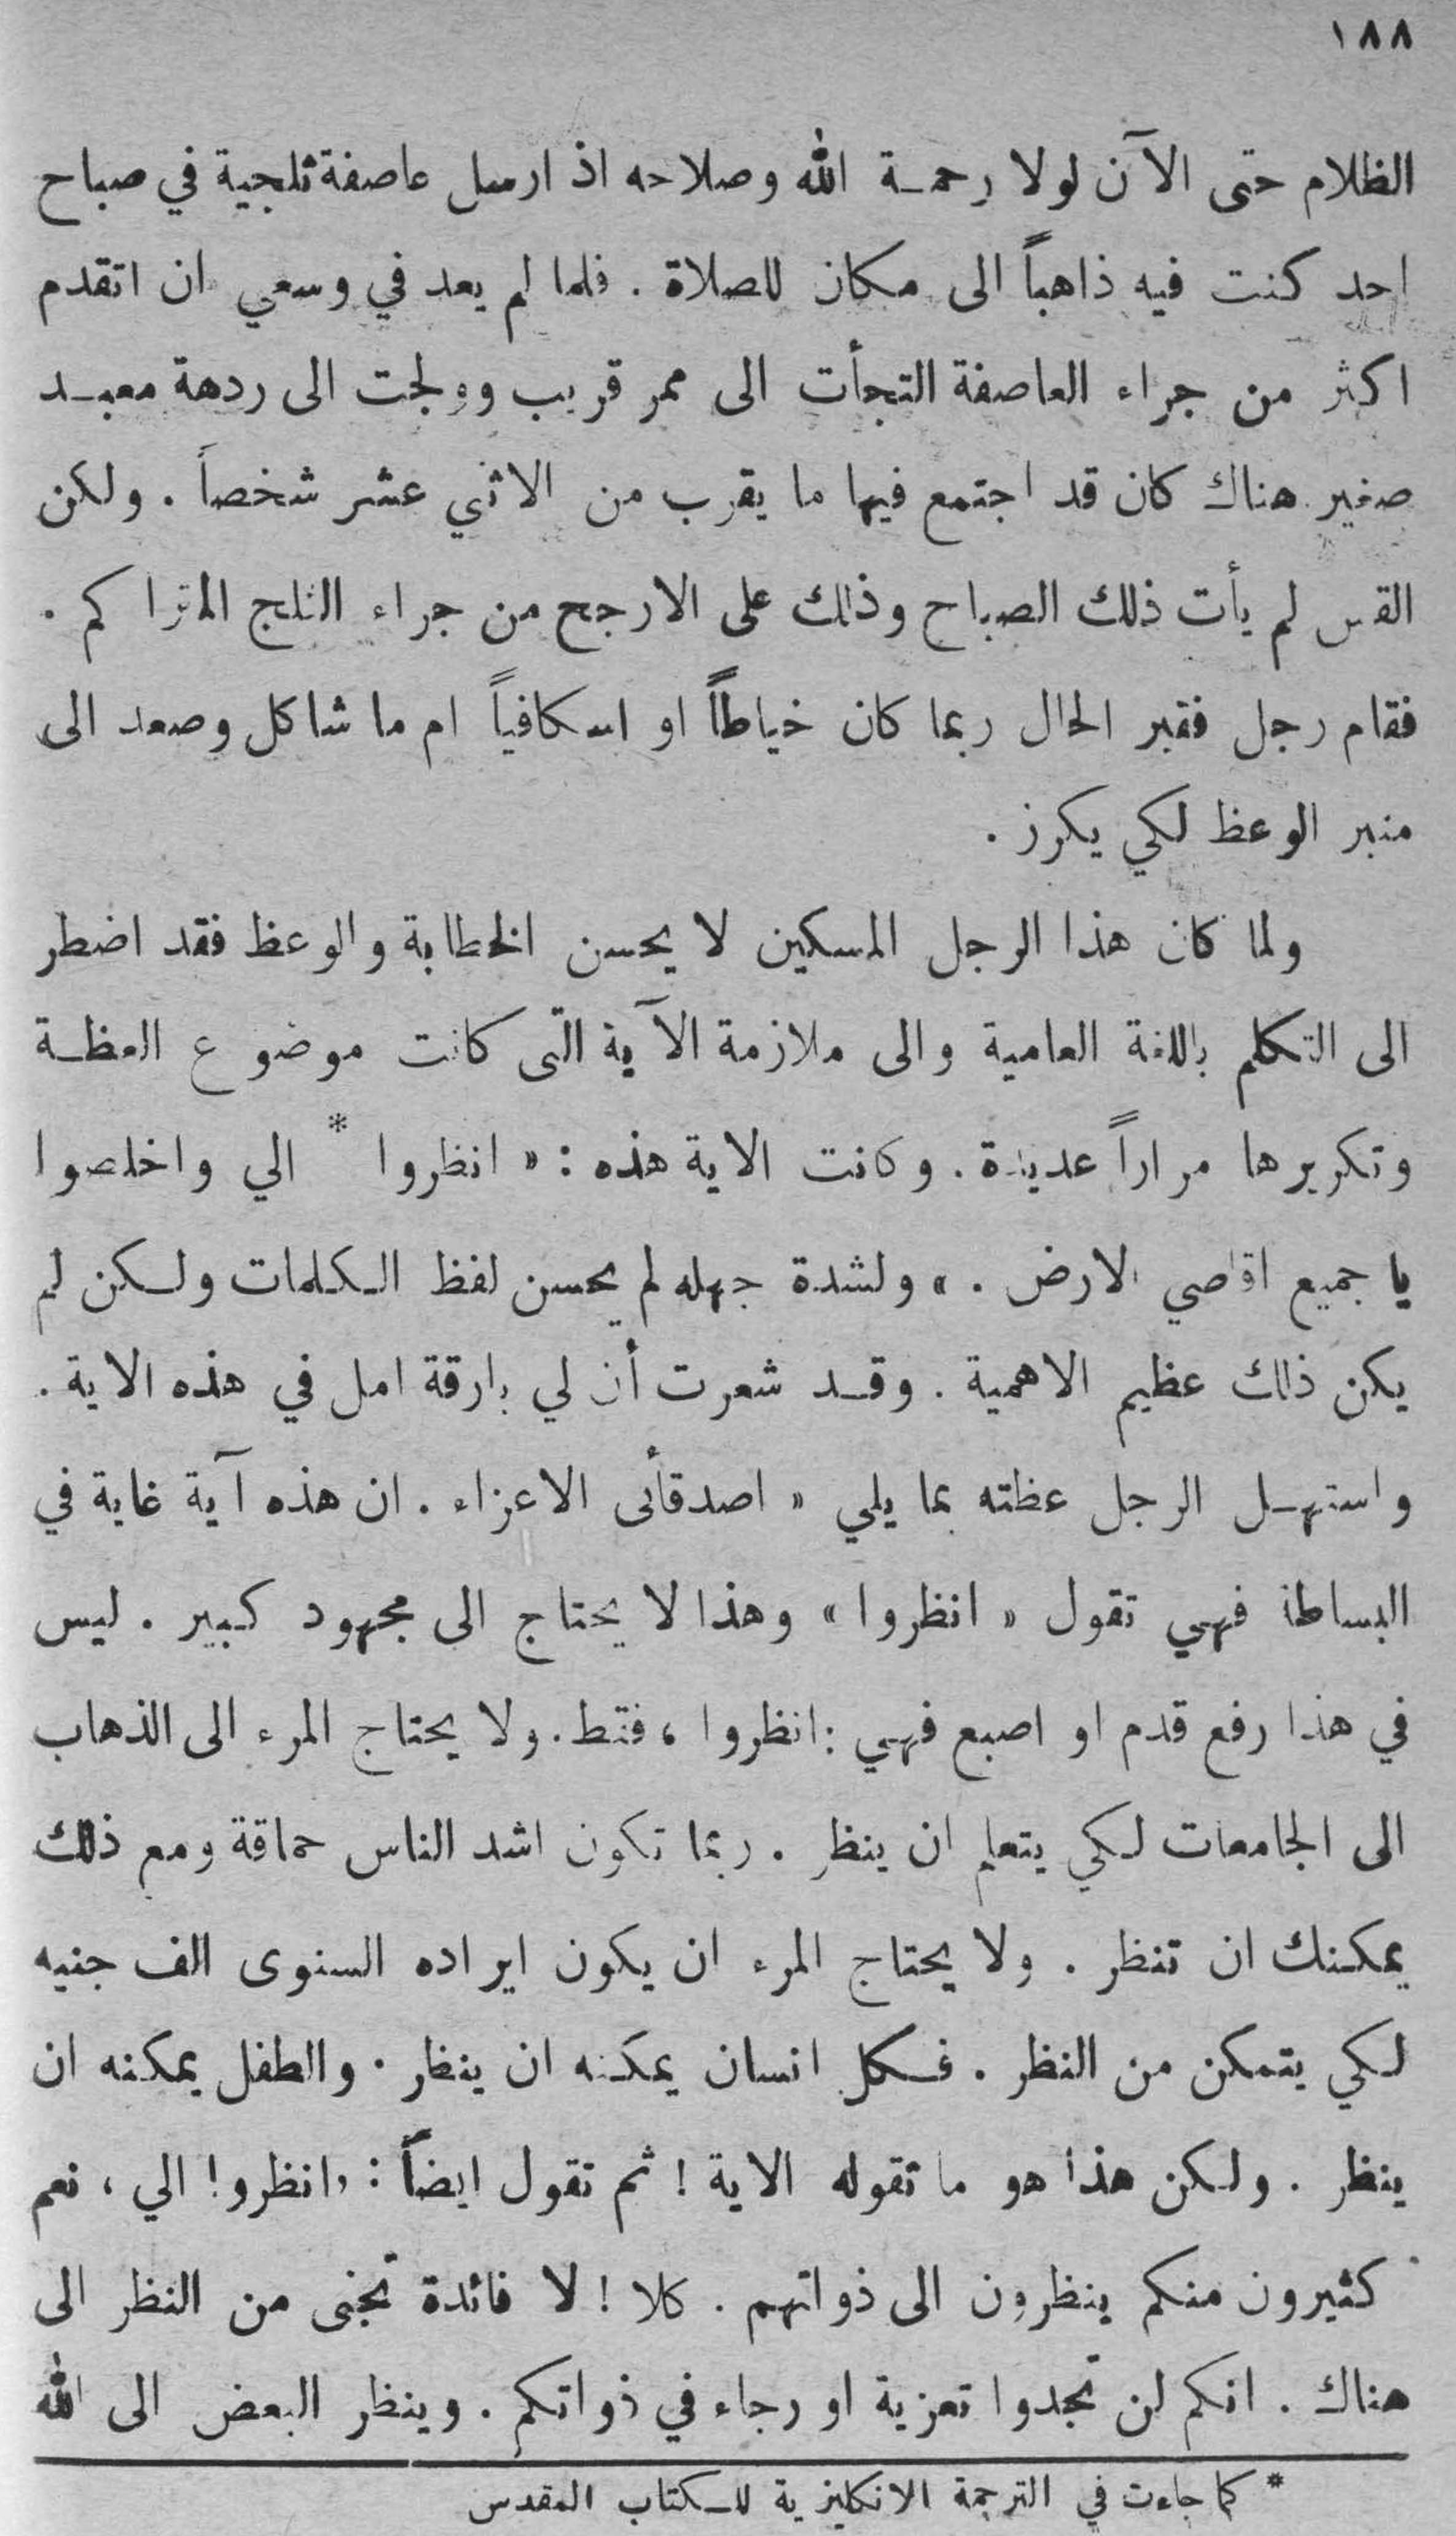 ١٨٨
الظلام حتى الآن لولا رحمة الله وصلاحه اذ ارسل عاصفة ثلجية في صباح
احد كنت فيه ذاهباً الى مكان للصلاة . فلما لم يعد في وسعي ان اتقدم
اكثر من جراء العاصفة التجأت الى ممر قريب وولجت الى ردهة معبد
صغير هناك كان قد اجتمع فيها ما يقرب من الاثني عشر شخصاً . ولكن
القس لم يأت ذلك الصباح وذلك على الارجح من جراء الثلج المتراكم .
فقام رجل فقير الحال ربما كان خياطاً او اسكافياً ام ما شاكل وصعد الى
منبر الوعظ لكي يكرز .
ولما كان هذا الرجل المسكين لا يحسن الخطابة والوعظ فقد اضطر
الى التكلم باللغة العامية والى ملازمة الآية التى كانت موضوع العظة
وتكريرها مراراً عديدة . وكانت الاية هذه : « انظروا * الي واخلصوا
يا جميع اقاصي الارض . » ولشدة جهله لم يحسن لفظ الكلمات ولكن لم
يكن ذلك عظيم الاهمية . وقد شعرت أن لي بارقة امل في هذه الاية .
واستهل الرجل عظته بما يلي « اصدقأئى الاعزاء . ان هذه آية غاية في
البساطة فهي تقول « انظروا » وهذا لا يحتاج الى مجهود كبير . ليس
في هذا رفع قدم او اصبع فهي : انظروا ، فقط . ولا يحتاج المرء الى الذهاب
الى الجامعات لكي يتعلم ان ينظر . ربما تكون اشد الناس حماقة ومع ذلك
يمكنك ان تنظر . ولا يحتاج المرء ان يكون ايراده السنوى الف جنيه
لكي يتمكن من النظر . فكل انسان يمكنه ان ينظر . والطفل يمكنه ان
ينظر . ولكن هذا هو ما تقوله الاية ! ثم تقول ايضاً : ، انظروا الي ، نعم
كثيرون منكم ينظرون الى ذواتهم . كلا ! لا فائدة تجنى من النظر الى
هناك . انكم لن تجدوا تعزية او رجاء في ذواتكم . وينظر البعض الى الله
* كما جاءت في الترجمة الانكليزية للكتاب المقدس